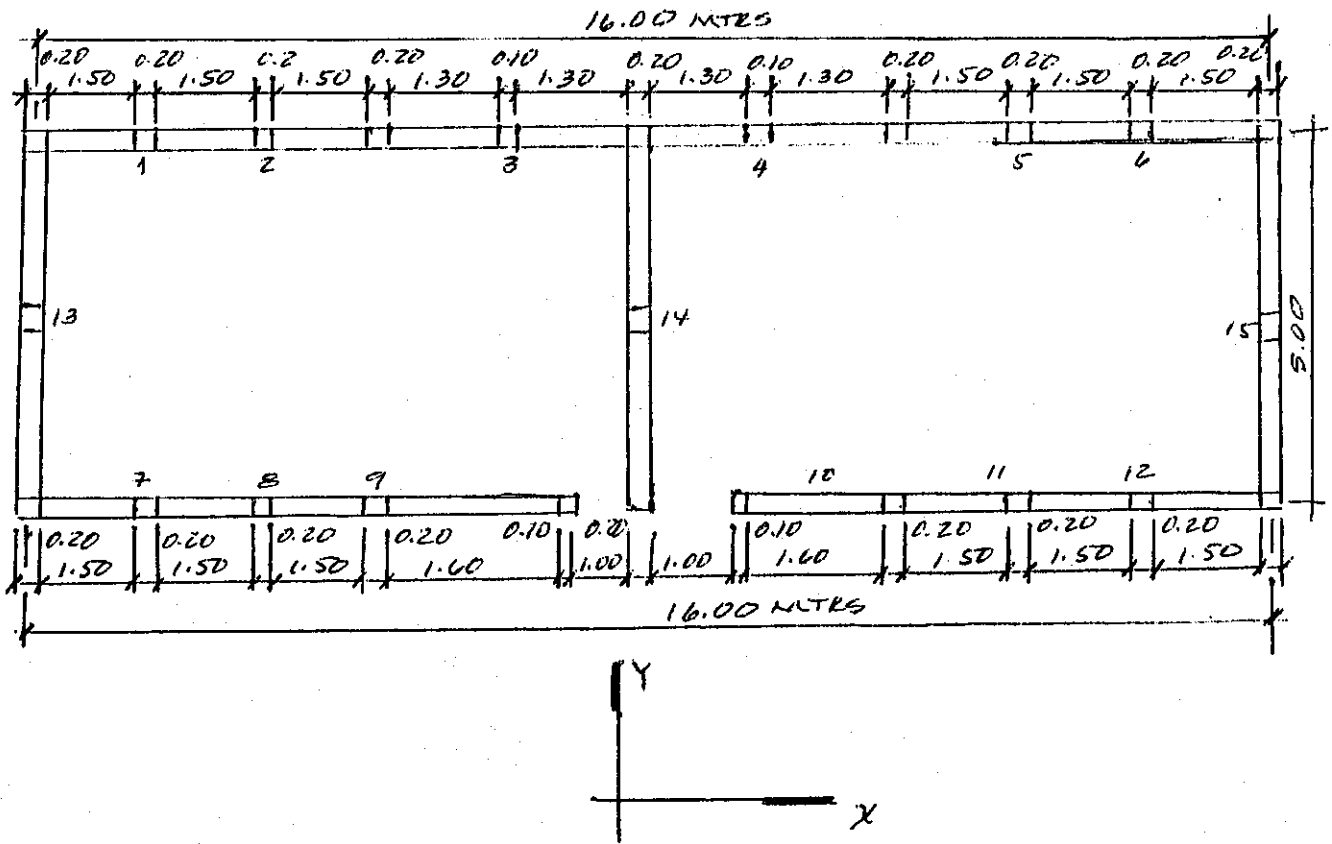 16.00 MTRS
0.20 0.20 0.2 0.20 0.10 0.20 0.10 0.20 0.20 0.20 0.20
1.50 1.50 1.50 1.30 1.30 1.30 1.30 1.50 1.50 1.50
1 2 3 4 5 6
13 14 15
5.00
7 8 9 10 11 12
0.20 0.20 0.20 0.20 0.10 0.20 0.10 0.20 0.20 0.20
1.50 1.50 1.50 1.60 1.00 1.00 1.60 1.50 1.50 1.50
16.00 MTRS
Y
X